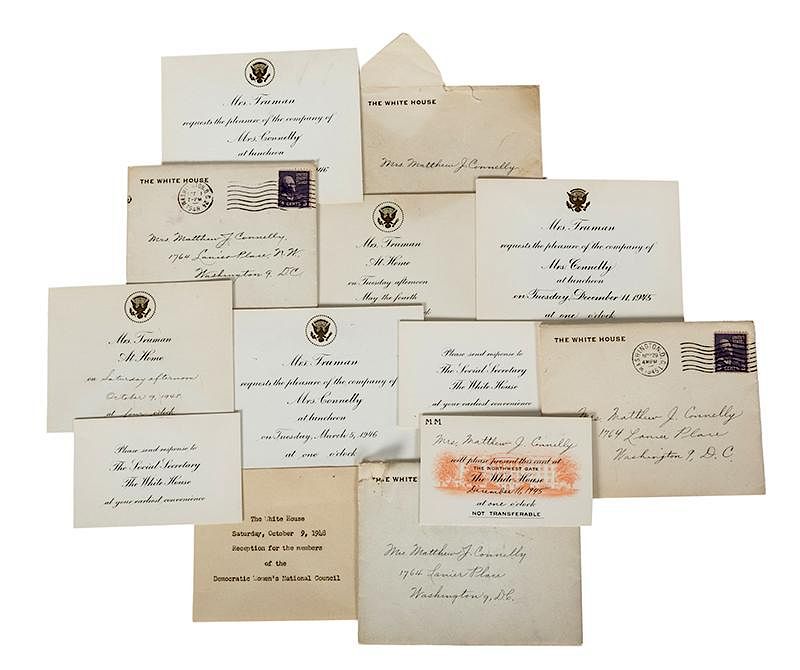 Mrs. Truman
requests the pleasure of the company of
Mrs. Connelly
at luncheon
1946
THE WHITE HOUSE
Mrs. Matthew J. Connelly
THE WHITE HOUSE
Mrs Matthew J. Connelly
1764 Lanier Place, N.W.
Washington 9, D.C.
Mrs. Truman
At Home
on Tuesday afternoon
May the fourth
Mrs. Truman
requests the pleasure of the company of
Mrs. Connelly
at luncheon
on Tuesday, December 11, 1945
at one o'clock
Mrs. Truman
At Home
on Saturday afternoon
October 9, 1948
at four o'clock
Mrs. Truman
requests the pleasure of the company of
Mrs. Connelly
at luncheon
on Tuesday, March 5, 1946
at one o'clock
Please send response to
The Social Secretary
The White House
at your earliest convenience
THE WHITE HOUSE
WASHINGTON, D.C.
NOV 29
4 PM
1945
Mrs. Matthew J. Connelly
1764 Lanier Place
Washington 9, D.C.
Please send response to
The Social Secretary
The White House
at your earliest convenience
MM
Mrs. Matthew J. Connelly
will please present this card at
THE NORTHWEST GATE
The White House
December 11, 1945
at one o'clock
NOT TRANSFERABLE
The White House
Saturday, October 9, 1948
Reception for the members
of the
Democratic Women's National Council
THE WHITE
Mrs Matthew J. Connelly
1764 Lanier Place
Washington 9, D.C.